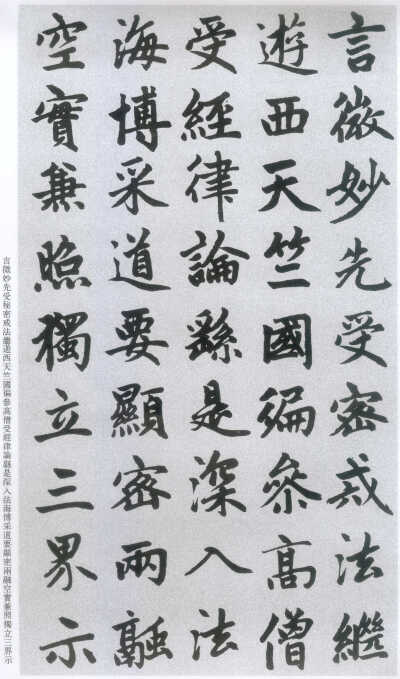 言微妙先受密戒法繼
遊西天竺國徧參高僧
受經律論繇是深入法
海博采道要顯密兩融
空實兼照獨立三界示
言微妙先受秘密戒法繼遊西天竺國徧參高僧受經律論繇是深入法海博采道要顯密兩融空實兼照獨立三界示